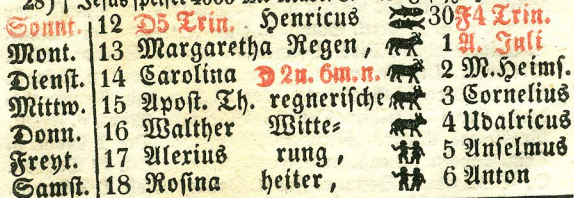 28) Jesus speiset 4000
Sonnt. 12 D5 Trin. Henricus 30 F4 Trin.
Mont. 13 Margaretha Regen, 1 A. Juli
Dienst. 14 Carolina ☽ 2u. 6m. n. 2 M. Heims.
Mittw. 15 Apost. Th. regnerische 3 Cornelius
Donn. 16 Walther Witte= 4 Udalricus
Freyt. 17 Alexius rung, 5 Anselmus
Samst. 18 Rosina heiter, 6 Anton